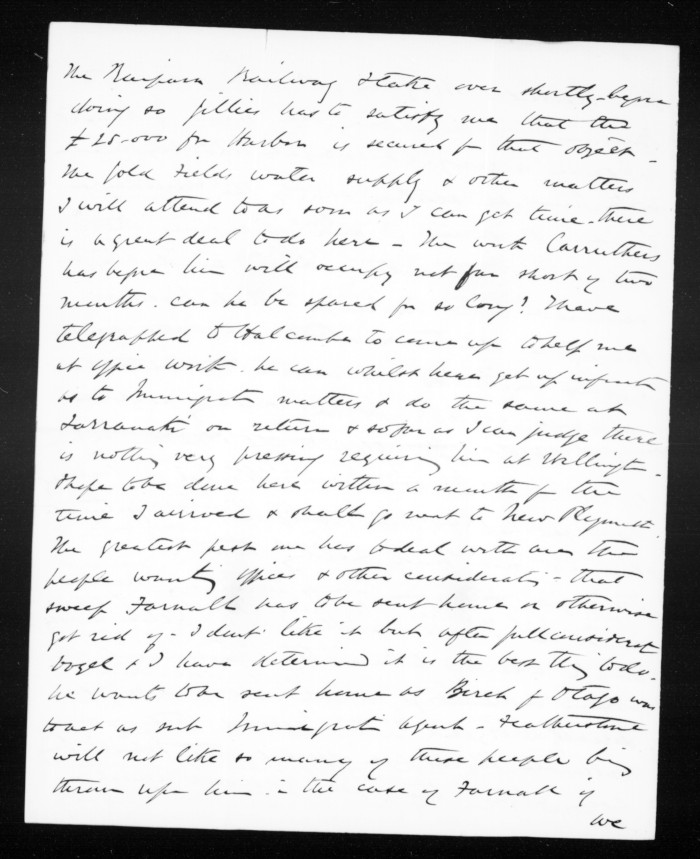 The Kaipara Railway I take over shortly - before
doing so Gillies has to satisfy me that the
£25.000 for Harbor is secured for that object -
The Gold Fields water supply & other matters
I will attend to as soon as I can get time - there
is a great deal to do here - The work Carruthers
has begun here will occupy not far short of two
months. can he be spared for so long? I have
telegraphed to Halcombe to come up to help me
at office work. he can whilst here get up informatn
as to Immigratn matters & do the same at
Tarranaki on return & so far as I can judge there
is nothing very pressing requiring him at Wellington -
I hope to be done here within a month from the
time I arrived & shall go next to New Plymouth.
The greatest pest one has to deal with are the
people wanting offices & other consideratn - that
sweep Farnall has to be sent home or otherwise
got rid of - I don't like it but after full considerat
Vogel & I have determined it is the best thing to do.
he wants to be sent home as Birch of Otago was
to act as sub Immigratn agent - Featherstone
will not like so many of these people being
thrown upon him - in the case of Farnall if
we